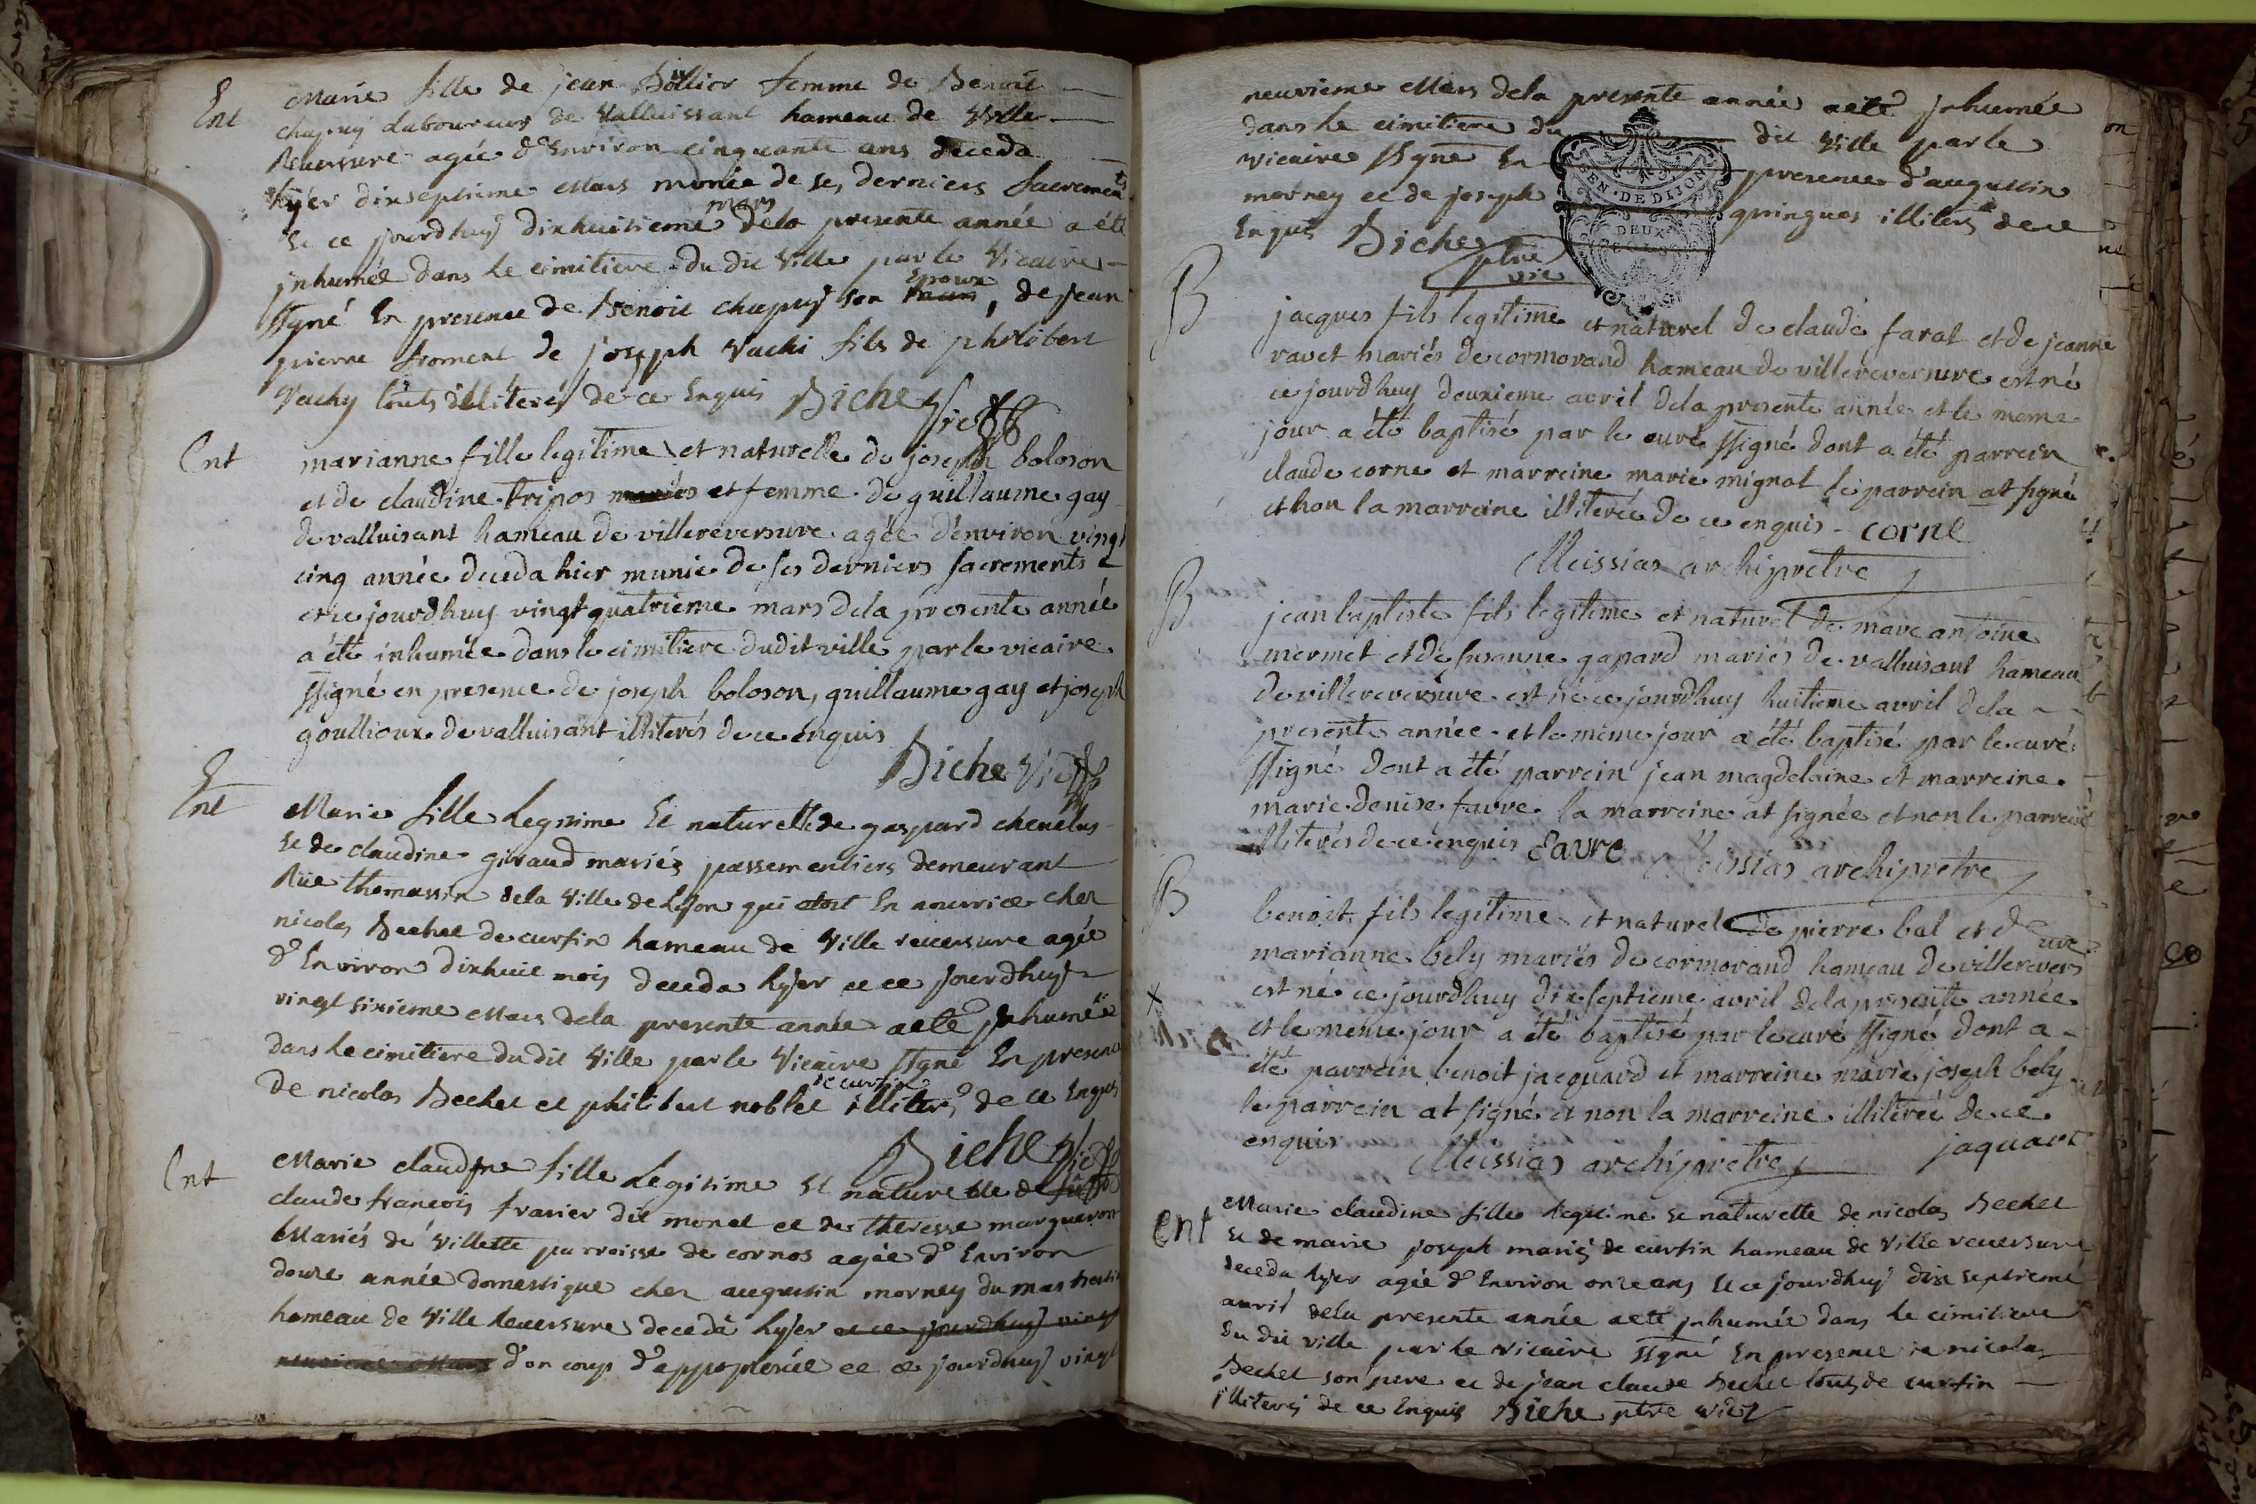 Ent
Marie fille de jean Bollier femme de Benoit
chapuy laboureur de Valluissant hameau de Ville
Reversure agée d'Environ cinquante ans deceda
hyer dixseptieme Mars munie de ses derniers sacrements
Et ce jourdhuy dixhuitieme mars dela presente année a été
jnhumée dans le cimitiere du dit Ville par le Vicaire
ssigné En presence de Benoit chapuy son epoux, de jean
pierre froment de joseph Vachi fils de philibert
Vachy touts illiterés de ce Enquis Biche Vic
Ent
marianne fille legitime et naturelle de joseph boloson
et de claudine tripos mariés et femme de guillaume gay
de valluisant hameau de villereversure agée d'environ vingt
cinq année deceda hier munie de ses derniers sacrements
et ce jourdhuy vingt quatrieme mars dela presente année
a été inhumée dans le cimitiere dudit ville par le vicaire
ssigné en presence de joseph boloson, guillaume gay et joseph
goullioux de valluisant illiterés de ce enquis
Biche Vic
Ent
Marie fille Legitime Et naturelle de gaspard chenelas
Et de claudine giraud mariés passementiers demeurant
Rüe thomassin dela Ville de Lyon qui etoit En nourrice chez
nicolas Bechet de curfin hameau de Ville reversure agée
d'Environ dixhuit mois deceda hyer et ce jourdhuy
vingt sixieme Mars dela presente année aeté jnhumée
dans le cimitiere du dit Ville par le Vicaire ssigné En presence
de nicolas Bechet et philibert noblet de curfin illiterés de ce Enquis
Biche Vic
Ent
Marie claudine fille Legitime Et naturelle de
claude francois travier dit monet et de theresse margueron
Mariés de Villette parroisse de cornos agée d'Environ
douze année domestique chez augustin morney du mas
hameau de Ville Reversure deceda hyer et ce jourdhuy vingt
neuvieme Mars d'un coup d'appoplexie et ce jourdhuy vingt
neuvieme Mars dela presente année aeté jnhumée
dans le cimitiere du dit Ville par le
vicaire ssigné En presence d'augustin
morney et de joseph guingues illiterés de ce
Enquis Biche ptre
vic
GEN. DE DIJON
DEUX
B
jacques fils legitime et naturel de claude farat et de jeanne
ravet mariés de cormorand hameau de villereversure est né
ce jourdhuy deuxieme avril dela presente année et le meme
jour a été baptisé par le curé ssigné dont a été parrein
claude corne et marreine marie mignot le parrein at signé
et non la marreine illiterée de ce enquis - corne
Meissias archipretre
B
jean baptiste fils legitime et naturel de marc antoine
mermet et de susanne gapard mariés de valluisant hameau
de villereversure est né ce jourdhuy huitieme avril dela
presente année et le même jour a été baptisé par le curé
ssigné dont a été parrein jean magdelaine et marreine
marie denise favre la marreine at signée et non le parrein
illiterés de ce enquis favre Meissias archipretre
B
benoit fils legitime et naturel de pierre bal et de
marianne bely mariés de cormorand hameau de villereversure
est né ce jourdhuy dix septieme avril dela presente année
et le même jour a été baptisé par le curé ssigné dont a
été parrein benoit jacquard et marreine marie joseph bely
le parrein at signé et non la marreine illiterée de ce
enquis jaquart
Meissias archipretre
Ent
Marie claudine fille legitime Et naturelle de nicolas Bechet
Et de marie joseph mariés de curfin hameau de Ville reversure
deceda hyer agée d'Environ onze ans Et ce jourdhuy dix septieme
avril dela presente année aeté jnhumée dans le cimitiere
du dit ville par le vicaire ssigné En presence de nicolas
Bechet son pere et de jean claude Bechet touts de curfin
illiterés de ce Enquis Biche ptre vic